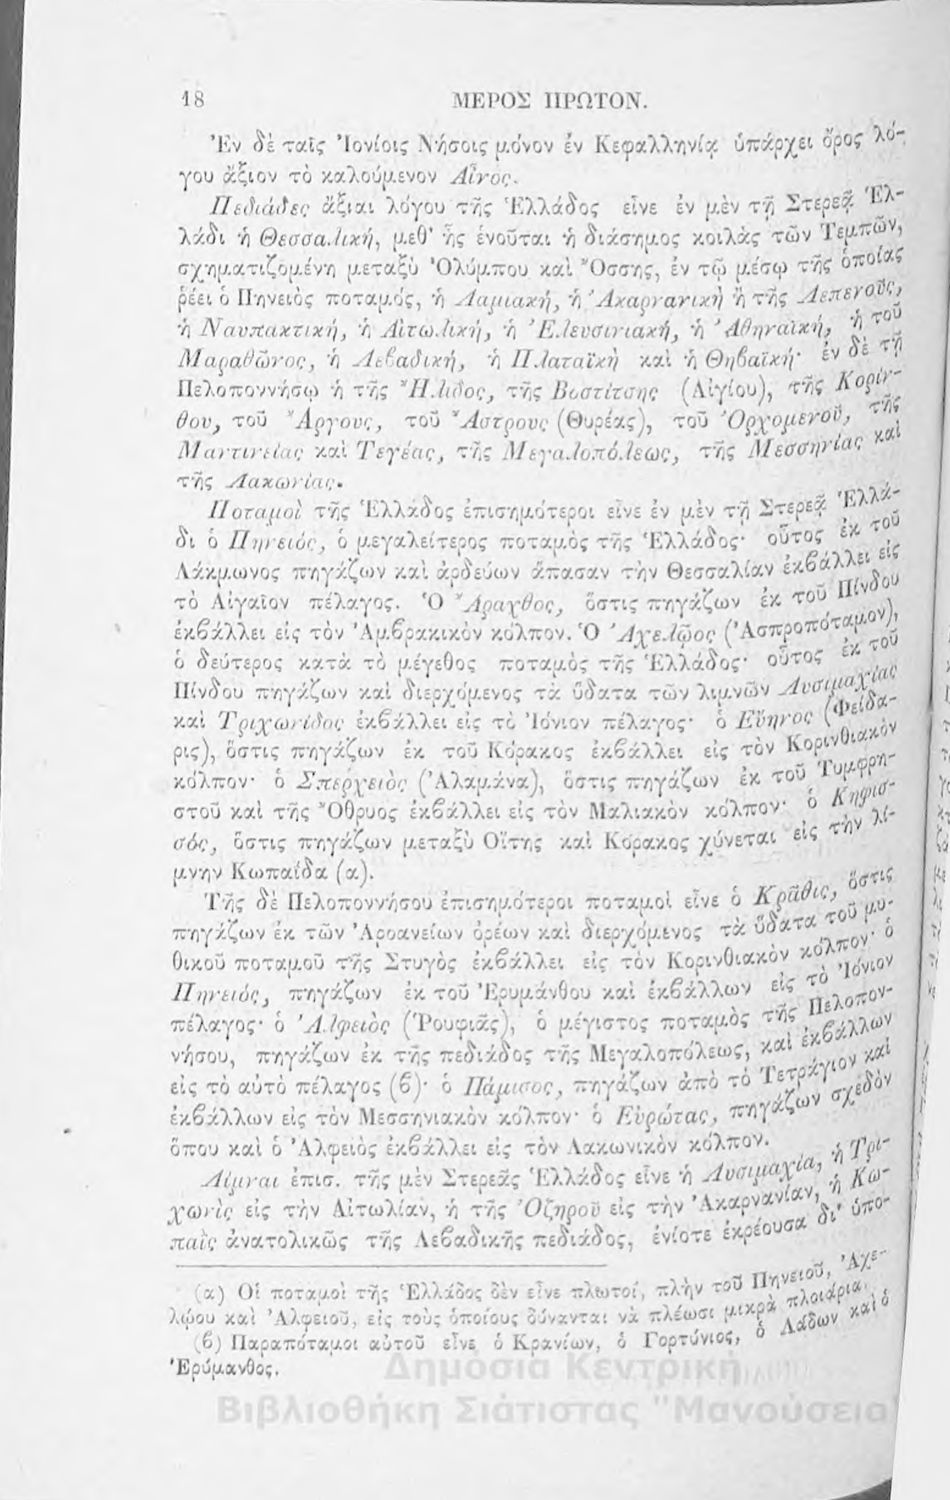 18 ΜΕΡΟΣ ΠΡΩΤΟΝ.
Ἐν δὲ ταῖς Ἰονίοις Νήσοις μόνον ἐν Κεφαλληνίᾳ ὑπάρχει ὄρος λό-
γου ἄξιον τὸ καλούμενον Αἶνος.
Πεδιάδες ἄξιαι λόγου τῆς Ἑλλάδος εἶνε ἐν μὲν τῇ Στερεᾷ Ἑλ-
λάδι ἡ Θεσσαλική, μεθ' ἧς ἑνοῦται ἡ διάσημος κοιλὰς τῶν Τεμπῶν,
σχηματιζομένη μεταξὺ Ὀλύμπου καὶ Ὄσσης, ἐν τῷ μέσῳ τῆς ὁποίας
ῥέει ὁ Πηνειὸς ποταμός, ἡ Λαμιακή, ἡ Ἀκαρνανικὴ ἢ τῆς Λεπενοῦς,
ἡ Ναυπακτική, ἡ Αἰτωλική, ἡ Ἐλευσινιακή, ἡ Ἀθηναϊκή, ἡ τοῦ
Μαραθῶνος, ἡ Λεβαδική, ἡ Πλαταϊκὴ καὶ ἡ Θηβαϊκή· ἐν δὲ τῇ
Πελοποννήσῳ ἡ τῆς Ἤλιδος, τῆς Βοστίτσης (Αἰγίου), τῆς Κορίν-
θου, τοῦ Ἄργους, τοῦ Ἄστρους (Θυρέας), τοῦ Ὀρχομενοῦ, τῆς
Μαντινείας καὶ Τεγέας, τῆς Μεγαλοπόλεως, τῆς Μεσσηνίας καὶ
τῆς Λακωνίας.
Ποταμοὶ τῆς Ἑλλάδος ἐπισημότεροι εἶνε ἐν μὲν τῇ Στερεᾷ Ἑλλά-
δι ὁ Πηνειός, ὁ μεγαλείτερος ποταμὸς τῆς Ἑλλάδος· οὗτος ἐκ τοῦ
Λάκμωνος πηγάζων καὶ ἀρδεύων ἅπασαν τὴν Θεσσαλίαν ἐκβάλλει εἰς
τὸ Αἰγαῖον πέλαγος. Ὁ Ἄραχθος, ὅστις πηγάζων ἐκ τοῦ Πίνδου
ἐκβάλλει εἰς τὸν Ἀμβρακικὸν κόλπον. Ὁ Ἀχελῷος (Ἀσπροπόταμον),
ὁ δεύτερος κατὰ τὸ μέγεθος ποταμὸς τῆς Ἑλλάδος· οὗτος ἐκ τοῦ
Πίνδου πηγάζων καὶ διερχόμενος τὰ ὕδατα τῶν λιμνῶν Λυσιμαχίας
καὶ Τριχωνίδος ἐκβάλλει εἰς τὸ Ἰόνιον πέλαγος· ὁ Εὔηνος (Φείδα-
ρις), ὅστις πηγάζων ἐκ τοῦ Κόρακος ἐκβάλλει εἰς τὸν Κορινθιακὸν
κόλπον· ὁ Σπερχειὸς (Ἀλαμάνα), ὅστις πηγάζων ἐκ τοῦ Τυμφρη-
στοῦ καὶ τῆς Ὄθρυος ἐκβάλλει εἰς τὸν Μαλιακὸν κόλπον· ὁ Κηφισ-
σός, ὅστις πηγάζων μεταξὺ Οἴτης καὶ Κόρακος χύνεται εἰς τὴν λί-
μνην Κωπαΐδα (α).
Τῆς δὲ Πελοποννήσου ἐπισημότεροι ποταμοὶ εἶνε ὁ Κρᾶθις, ὅστις
πηγάζων ἐκ τῶν Ἀροανείων ὀρέων καὶ διερχόμενος τὰ ὕδατα τοῦ μυ-
θικοῦ ποταμοῦ τῆς Στυγὸς ἐκβάλλει εἰς τὸν Κορινθιακὸν κόλπον· ὁ
Πηνειός, πηγάζων ἐκ τοῦ Ἐρυμάνθου καὶ ἐκβάλλων εἰς τὸ Ἰόνιον
πέλαγος· ὁ Ἀλφειὸς (Ῥουφιᾶς), ὁ μέγιστος ποταμὸς τῆς Πελοπον-
νήσου, πηγάζων ἐκ τῆς πεδιάδος τῆς Μεγαλοπόλεως, καὶ ἐκβάλλων
εἰς τὸ αὐτὸ πέλαγος (β)· ὁ Πάμισος, πηγάζων ἀπὸ τὸ Τετράγιον καὶ
ἐκβάλλων εἰς τὸν Μεσσηνιακὸν κόλπον· ὁ Εὐρώτας, πηγάζων σχεδὸν
ὅπου καὶ ὁ Ἀλφειὸς ἐκβάλλει εἰς τὸν Λακωνικὸν κόλπον.
Λίμναι ἐπισ. τῆς μὲν Στερεᾶς Ἑλλάδος εἶνε ἡ Λυσιμαχία, ἡ Τρι-
χωνὶς εἰς τὴν Αἰτωλίαν, ἡ τῆς Ὀζηροῦ εἰς τὴν Ἀκαρνανίαν, ἡ Κω-
παῒς ἀνατολικῶς τῆς Λεβαδικῆς πεδιάδος, ἐνίοτε ἐκρέουσα δι' ὑπο-
(α) Οἱ ποταμοὶ τῆς Ἑλλάδος δὲν εἶνε πλωτοί, πλὴν τοῦ Πηνειοῦ, Ἀχε-
λῴου καὶ Ἀλφειοῦ, εἰς τοὺς ὁποίους δύνανται νὰ πλέωσι μικρὰ πλοιάρια.
(β) Παραπόταμοι αὐτοῦ εἶνε ὁ Κρανίων, ὁ Γορτύνιος, ὁ Λάδων καὶ ὁ
Ἐρύμανθος.
Δημόσια Κεντρική
Βιβλιοθήκη Σιάτιστας "Μανούσεια